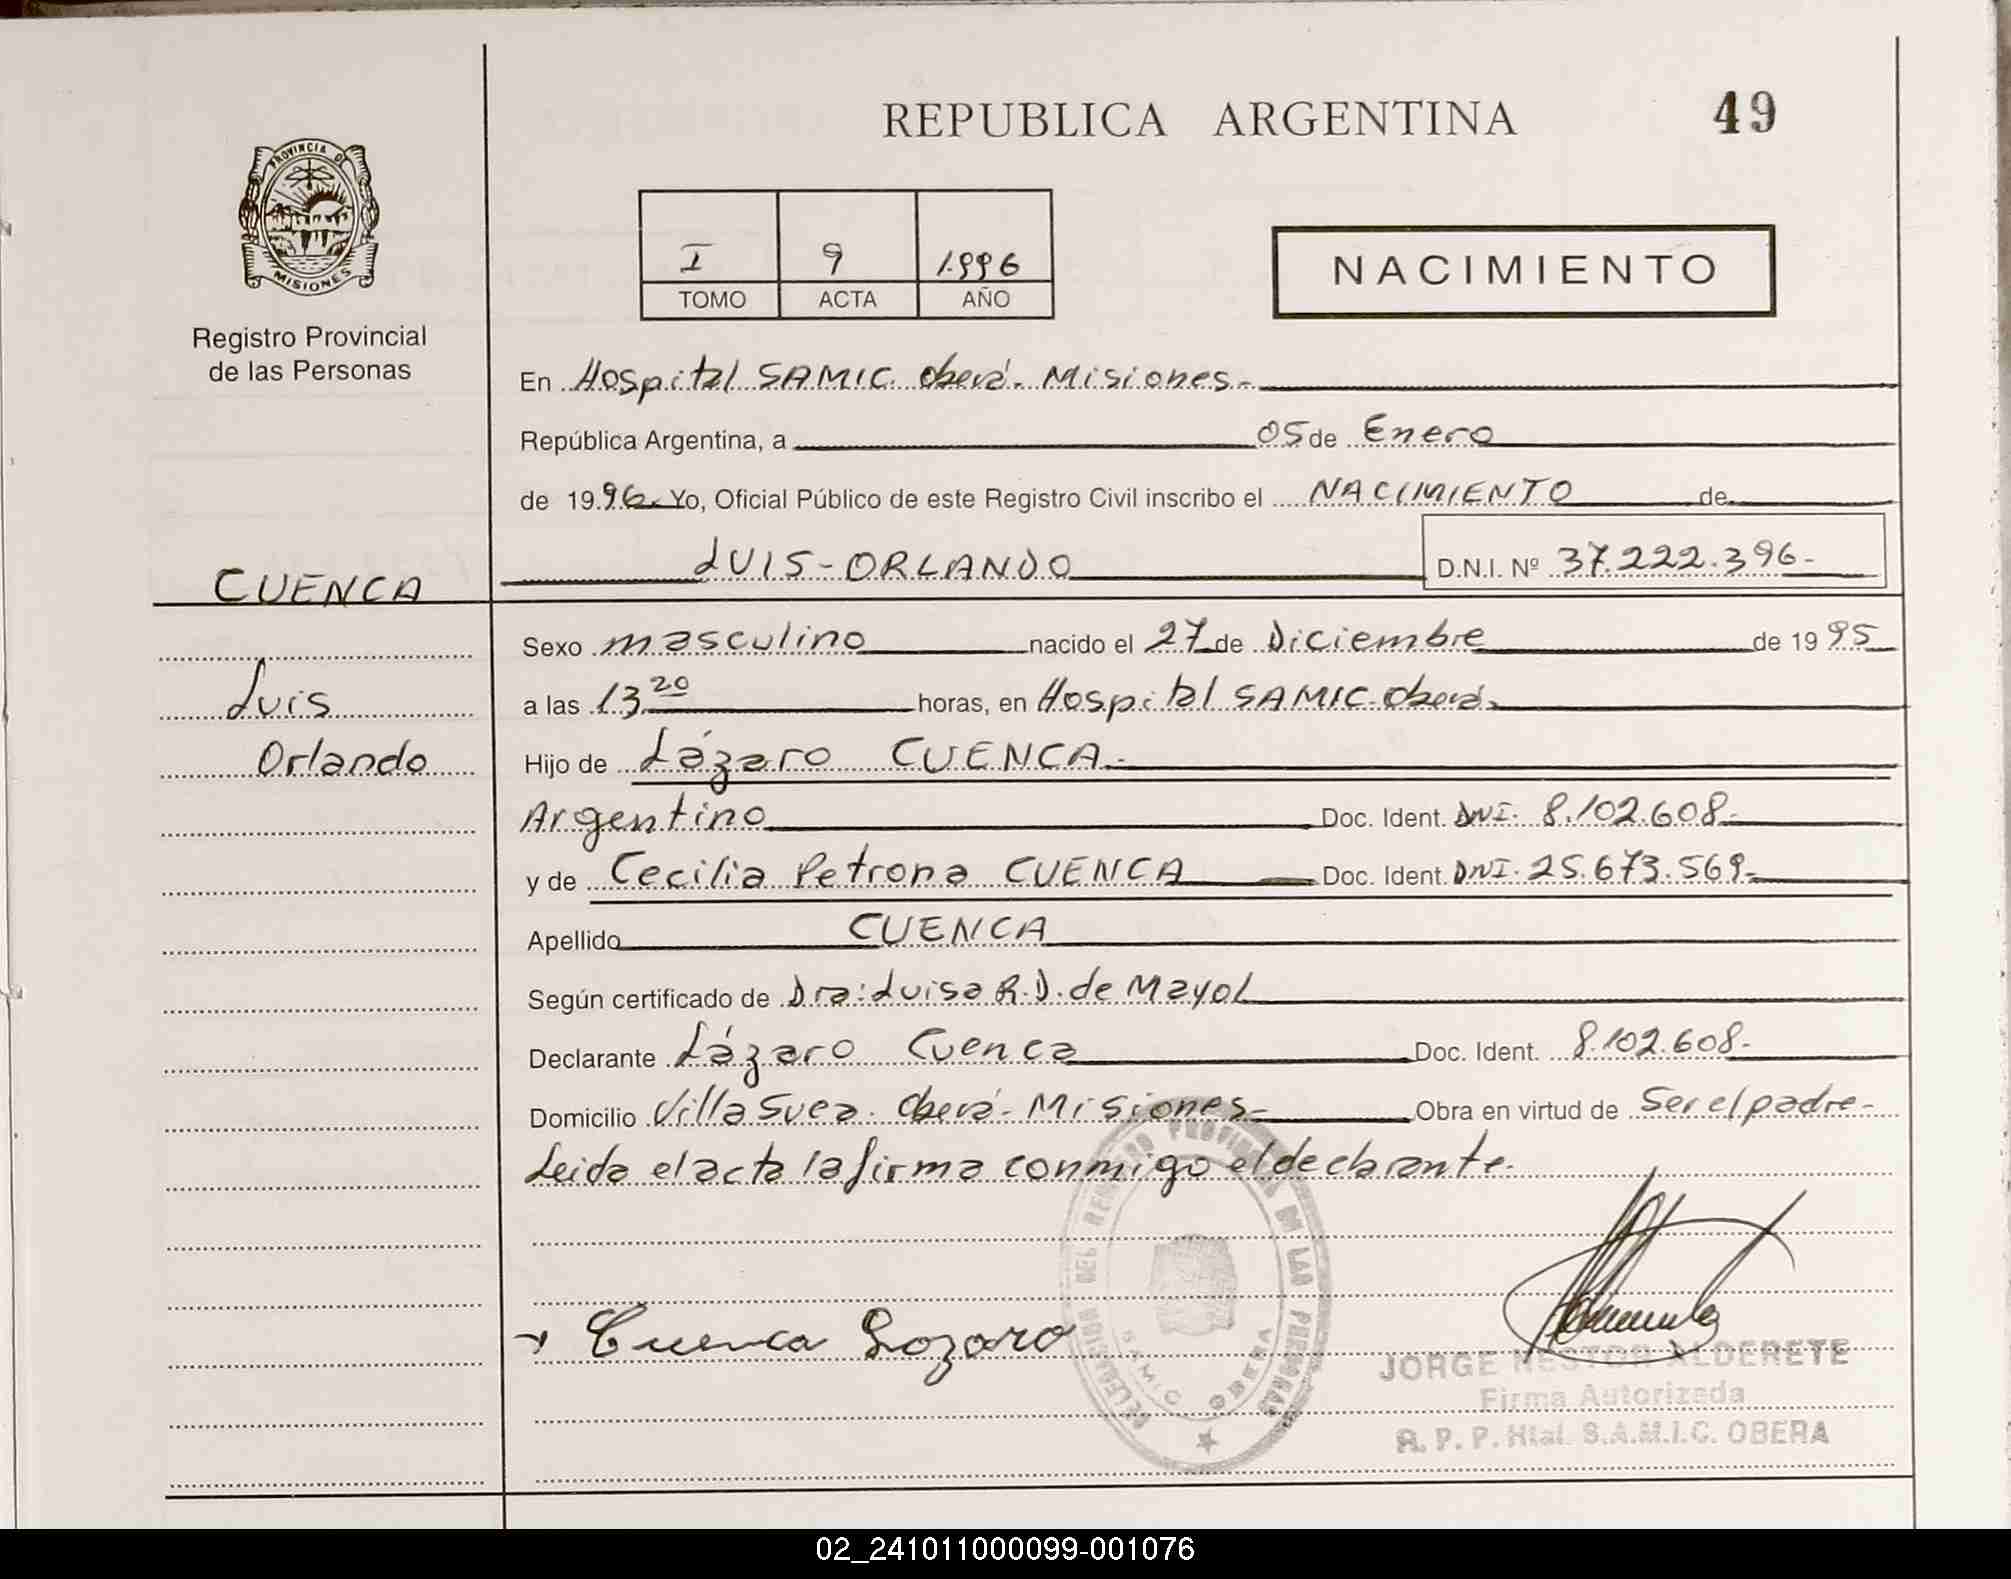 REPUBLICA ARGENTINA
49
PROVINCIA DE
MISIONES
Registro Provincial
de las Personas
I 9 1996
TOMO ACTA AÑO
NACIMIENTO
En Hospital SAMIC. Oberá. Misiones.-
República Argentina, a 05 de Enero
de 1996. Yo, Oficial Público de este Registro Civil inscribo el NACIMIENTO de
LUIS-ORLANDO
D.N.I. Nº 37.222.396-
CUENCA
Luis
Orlando
Sexo masculino nacido el 27 de Diciembre de 1995
a las 13 20 horas, en Hospital SAMIC. Oberá.
Hijo de Lázaro CUENCA.-
Argentino Doc. Ident. DNI. 8.102.608-
y de Cecilia Petrona CUENCA Doc. Ident. DNI. 25.673.569-
Apellido CUENCA
Según certificado de Dra: Luisa R.D. de Mayol
Declarante Lázaro Cuenca Doc. Ident. 8.102.608-
Domicilio Villa Svea. Oberá- Misiones- Obra en virtud de Ser el padre-
Leida el acta la firma conmigo el declarante.
Cuenca Lozoro
DELEGACION DEL REGISTRO PROVINCIAL DE LAS PERSONAS
SAMIC OBERA
JORGE NESTOR ALDERETE
Firma Autorizada
R. P. P. Htal. S.A.M.I.C. OBERA
02_241011000099-001076